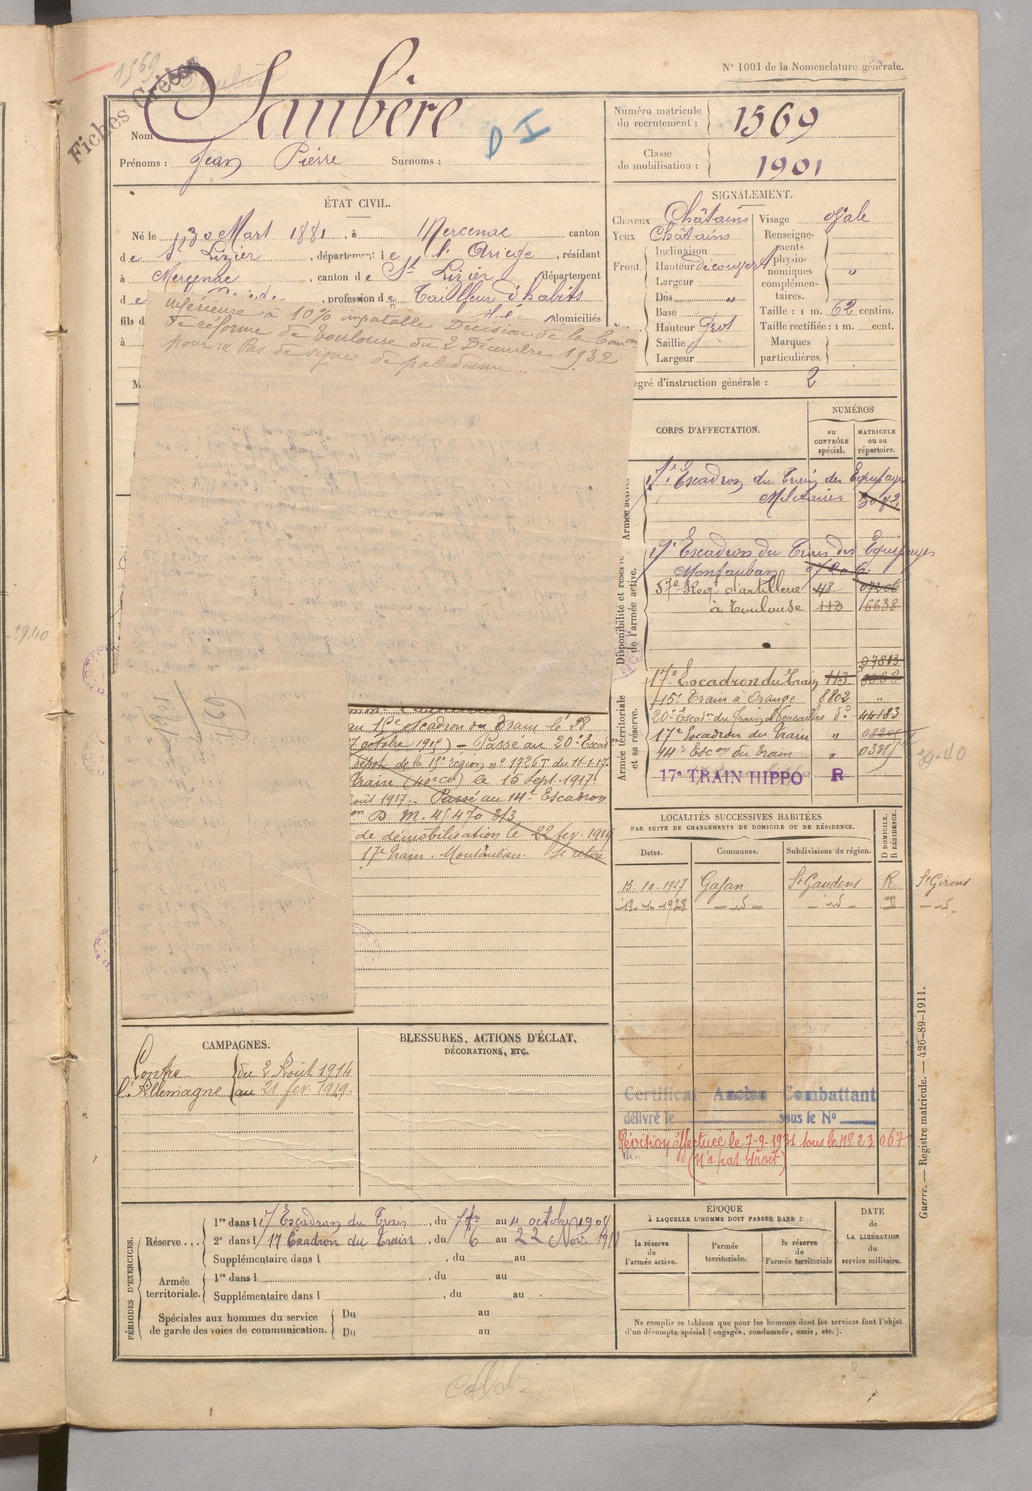 1569
Fiches Créées
N° 1001 de la Nomenclature générale.
Nom Saubère
D I
Prénoms : Jean Pierre Surnoms :
Numéro matricule du recrutement : 1569
Classe de mobilisation : 1901
ÉTAT CIVIL.
Né le 30 Mart 1881, à Mercenac canton
de St Lizier, département de l'Ariège, résidant
à Mercenac, canton de St Lizier, département
de, profession de Tailleur d'habits
fils d domiciliés
à
inférieure à 10% imputable Décision de la Comon
de réforme de Toulouse du 2 Décembre 1932
pour : « Pas de signes de paludisme »
SIGNALEMENT.
Cheveux Châtains
Yeux Châtains
Front.
Inclinaison
Hauteur découvert
Largeur
Dos "
Base
Hauteur Gros
Saillie
Largeur
Visage Ovale
Renseignements physionomiques complémentaires. "
Taille : 1 m. 62 centim.
Taille rectifiée : 1 m. cent.
Marques particulières.
egré d'instruction générale : 2
CORPS D'AFFECTATION.
NUMÉROS
au CONTRÔLE spécial.
MATRICULE ou au répertoire.
Armée active.
17e Escadron du Train des Equipages
Militaires
Disponibilité et réserve de l'armée active.
17e Escadron du Train des Equipages
Montauban
57e Reg. d'artillerie 48
à Toulouse 113 6638
Armée territoriale et sa réserve.
07813
17e Escadron du Train 113
15e Train à Orange 8802 "
20e Escad. du Train à Versailles do 44183
17e Escadron du Train "
44e Escon du Train "
17e TRAIN HIPPO R
39-40
39.40
1901
1569
au 17e escadron du Train le 28
octobre 1915) – Passé au 20e Escad
dépêche de la 15e région n° 1726 T du 11-1-17
Train (40e Cie) le 15 Sept. 1917.
août 1917. Passé au 14e Escadron
on D. M. 45470 2/3
de démobilisation le 22 fev. 1919
17e Train. Montauban. Se retire
LOCALITÉS SUCCESSIVES HABITÉES
PAR SUITE DE CHANGEMENTS DE DOMICILE OU DE RÉSIDENCE.
Dates. Communes. Subdivisions de région. D DOMICILE. R RÉSIDENCE.
13.10.1927 Gajan St Gaudens R St Girons
13.1.1928 – id – – id – D – id.
CAMPAGNES.
Contre l'Allemagne
du 2 Août 1914
au 21 fev. 1919.
BLESSURES, ACTIONS D'ÉCLAT,
DÉCORATIONS, ETC.
Certificat Ancien Combattant
délivré le sous le N°
Révision effectuée le 7-9-1931 sous le n° 23067
(N'a pas droit)
Guerre. — Registre matricule. — 426-89-1911.
PÉRIODES D'EXERCICES.
Réserve ...
1re dans l 17 Escadron du Train, du 7 7bre au 4 octobre 1907
2e dans l 17 Escadron du Train, du 6 au 22 Nov. 1911
Supplémentaire dans l du au
Armée territoriale.
1re dans l, du au
Supplémentaire dans l, du au
Spéciales aux hommes du service de garde des voies de communication.
Du au
Du au
ÉPOQUE
À LAQUELLE L'HOMME DOIT PASSER DANS :
la réserve de l'armée active.
l'armée territoriale.
la réserve de l'armée territoriale
DATE de LA LIBÉRATION du service militaire.
Ne remplir ce tableau que pour les hommes dont les services font l'objet
d'un décompte spécial (engagés, condamnés, omis, etc.).